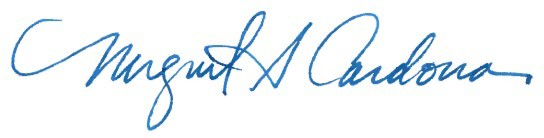 Miguel A Cardona